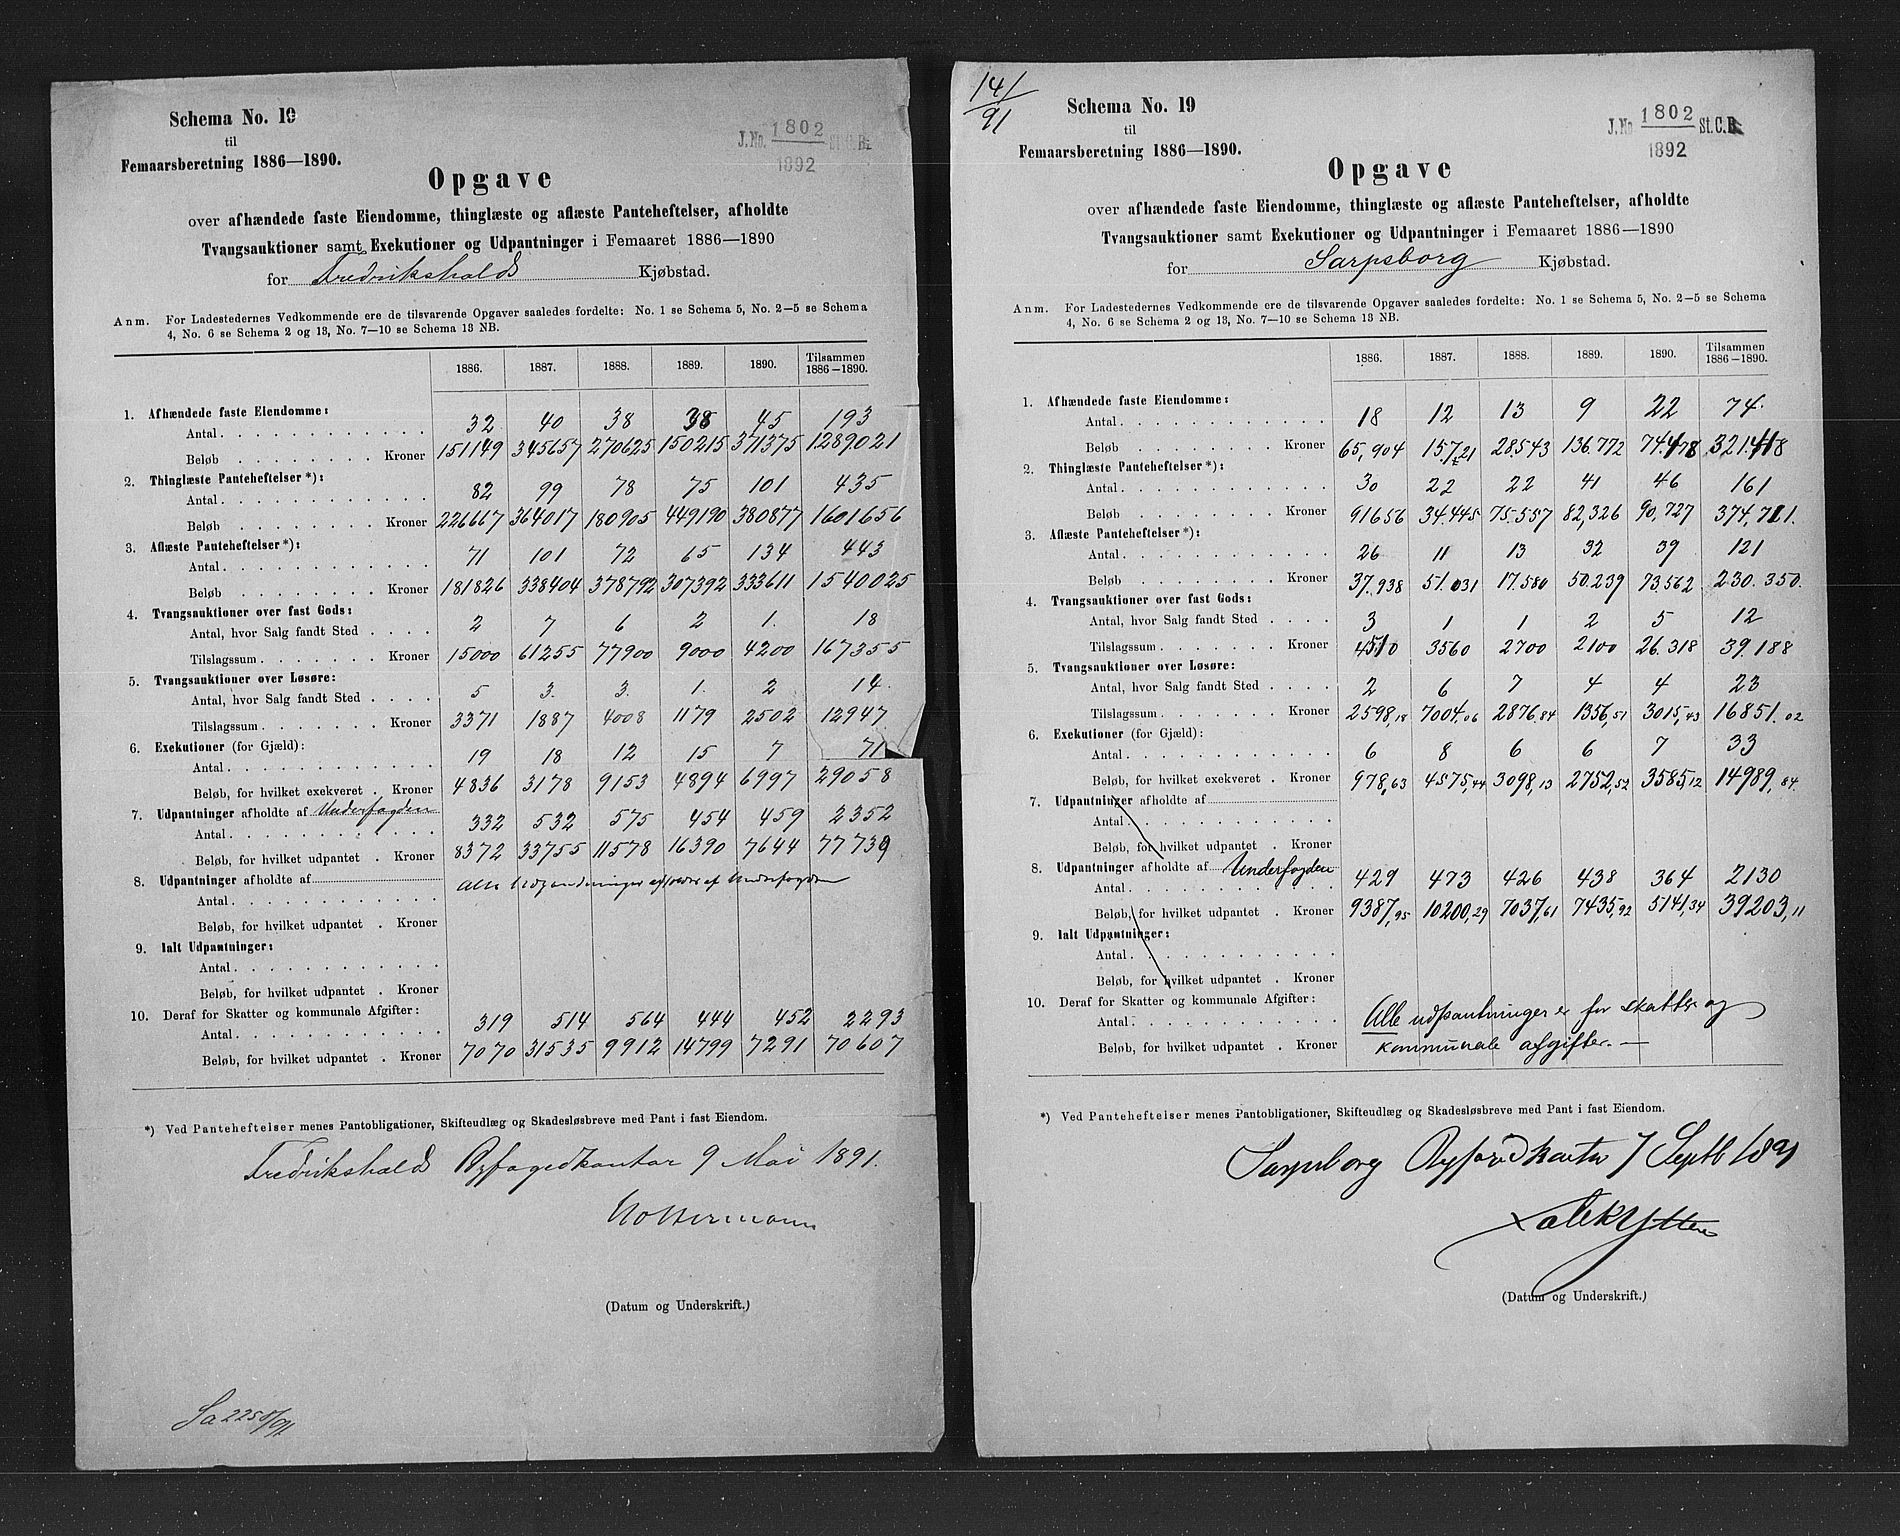 Schema No. 19
til
Femaarsberetning 1886—1890.
J. No. 1802 St. C. B.
1892
Opgave
over afhændede faste Eiendomme, thinglæste og aflæste Panteheftelser, afholdte
Tvangsauktioner samt Exekutioner og Udpantninger i Femaaret 1886—1890
for Fredrikshalds Kjøbstad.
Anm. For Ladestedernes Vedkommende ere de tilsvarende Opgaver saaledes fordelte: No. 1 se Schema 5, No. 2—5 se Schema
4, No. 6 se Schema 2 og 13, No. 7—10 se Schema 13 NB.
1886. 1887. 1888. 1889. 1890. Tilsammen 1886—1890.
1. Afhændede faste Eiendomme:
Antal 32 40 38 38 45 193
Beløb Kroner 151149 345657 270625 150215 371375 1289021
2. Thinglæste Panteheftelser*):
Antal 82 99 78 75 101 435
Beløb Kroner 226667 364017 180905 449190 380877 1601656
3. Aflæste Panteheftelser*):
Antal 71 101 72 65 134 443
Beløb Kroner 181826 338404 378792 307392 333611 1540025
4. Tvangsauktioner over fast Gods:
Antal, hvor Salg fandt Sted 2 7 6 2 1. 18
Tilslagssum Kroner 15000 61255 77900 9000 4200 167355
5. Tvangsauktioner over Løsøre:
Antal, hvor Salg fandt Sted 5 3. 3. 1. 2 14.
Tilslagssum Kroner 3371 1887 4008 1179 2502 12947
6. Exekutioner (for Gjæld):
Antal 19 18 12 15 7 71
Beløb, for hvilket exekveret Kroner 4836 3178 9153 4894 6997 29058
7. Udpantninger afholdte af Underfogden
Antal 332 532 575 454 459 2352
Beløb, for hvilket udpantet Kroner 8372 33755 11578 16390 7644 77739
8. Udpantninger afholdte af Alle Udpantninger af Underfogden
Antal
Beløb, for hvilket udpantet Kroner
9. Ialt Udpantninger:
Antal
Beløb, for hvilket udpantet Kroner
10. Deraf for Skatter og kommunale Afgifter:
Antal 319 514 564 444 452 2293
Beløb, for hvilket udpantet Kroner 7070 31535 9912 14799 7291 70607
*) Ved Panteheftelser menes Pantobligationer, Skifteudlæg og Skadesløsbreve med Pant i fast Eiendom.
Fredrikshalds Byfogedkontor 9 Mai 1891.
(Datum og Underskrift.)
14/91
Schema No. 19
til
Femaarsberetning 1886—1890.
J. No 1802 St. C. B.
1892
Opgave
over afhændede faste Eiendomme, thinglæste og aflæste Panteheftelser, afholdte
Tvangsauktioner samt Exekutioner og Udpantninger i Femaaret 1886—1890
for Sarpsborg Kjøbstad.
Anm. For Ladestedernes Vedkommende ere de tilsvarende Opgaver saaledes fordelte: No. 1 se Schema 5, No. 2—5 se Schema
4, No. 6 se Schema 2 og 13, No. 7—10 se Schema 13 NB.
1886. 1887. 1888. 1889. 1890. Tilsammen 1886—1890.
1. Afhændede faste Eiendomme:
Antal 18 12 13 9 22 74.
Beløb Kroner 65,904 15.721 28.543 136.772
2. Thinglæste Panteheftelser*):
Antal 30 22 22 41 46 161
Beløb Kroner 91656 34.445 75.557 82,326 90,727 374,711.
3. Aflæste Panteheftelser*):
Antal 26 11 13 32 39 121
Beløb Kroner 37.938 51.031 17.580 50.239 73.562 230.350.
4. Tvangsauktioner over fast Gods:
Antal, hvor Salg fandt Sted 3 1 1 2 5 12
Tilslagssum Kroner 4510 3560 2700 2100 26.318 39.188
5. Tvangsauktioner over Løsøre:
Antal, hvor Salg fandt Sted 2 6 7 4 4 23
Tilslagssum Kroner 2598,18 7004,06 2876,84 1356,51 3015,43 16851.02
6. Exekutioner (for Gjæld):
Antal 6 8 6 6 7 33
Beløb, for hvilket exekveret Kroner 978,63 4575,44 3098,13 2752,52 3585,12 14989,84.
7. Udpantninger afholdte af
Antal
Beløb, for hvilket udpantet Kroner
8. Udpantninger afholdte af Underfogden
Antal 429 473 426 438 364 2130
Beløb, for hvilket udpantet Kroner 9387,95 10200,29 7037,61 7435,92 5141,34 39203,11
9. Ialt Udpantninger:
Antal
Beløb, for hvilket udpantet Kroner
10. Deraf for Skatter og kommunale Afgifter:
Antal Alle udpantninger er for skatter og
Beløb, for hvilket udpantet Kroner kommunale afgifter. —
*) Ved Panteheftelser menes Pantobligationer, Skifteudlæg og Skadesløsbreve med Pant i fast Eiendom.
Sarpsborg Byfogedkontor 7 Septb 1891
(Datum og Underskrift.)